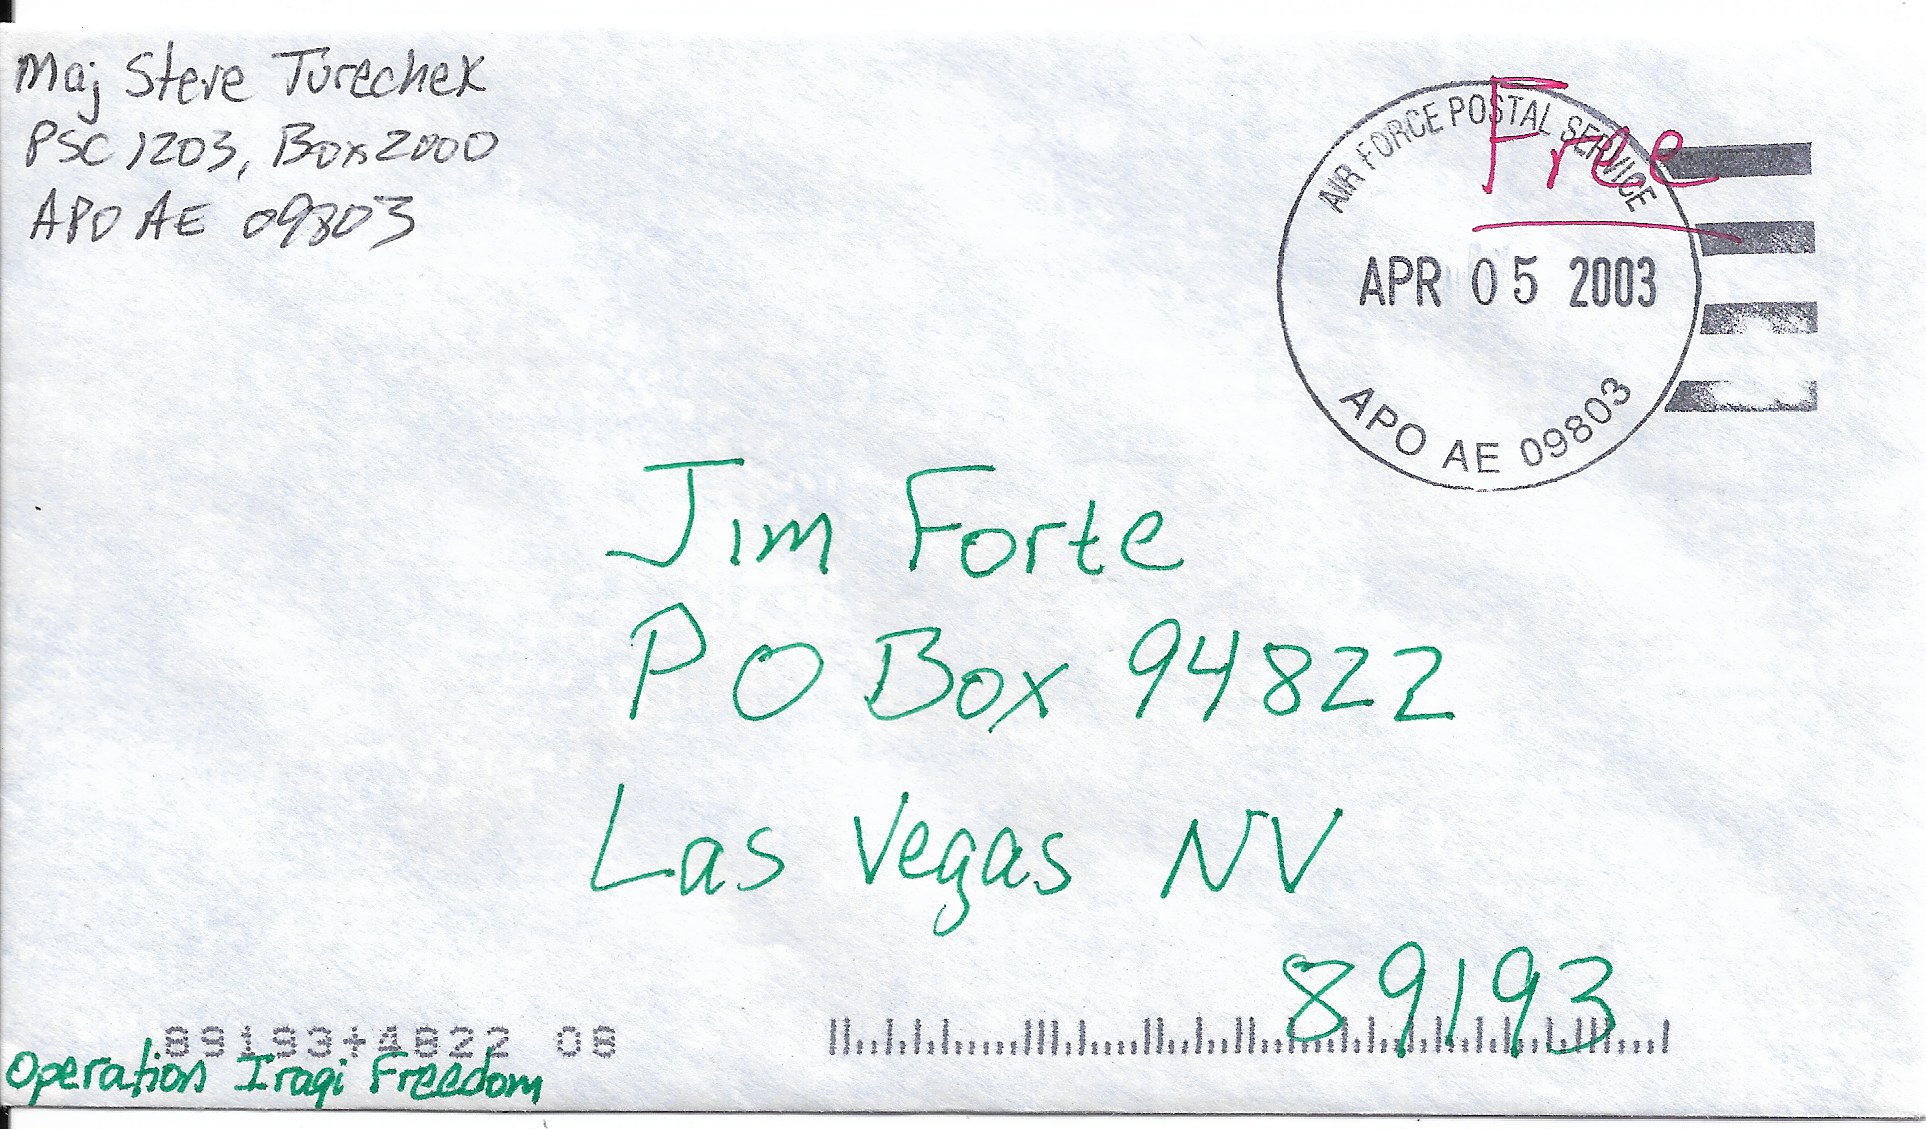 Maj Steve Turechek
PSC 1203, Box 2000
APO AE 09803
Free
AIR FORCE POSTAL SERVICE
APR 05 2003
APO AE 09803
Jim Forte
PO Box 94822
Las Vegas NV
89193
89193+4822 08
Operation Iraqi Freedom